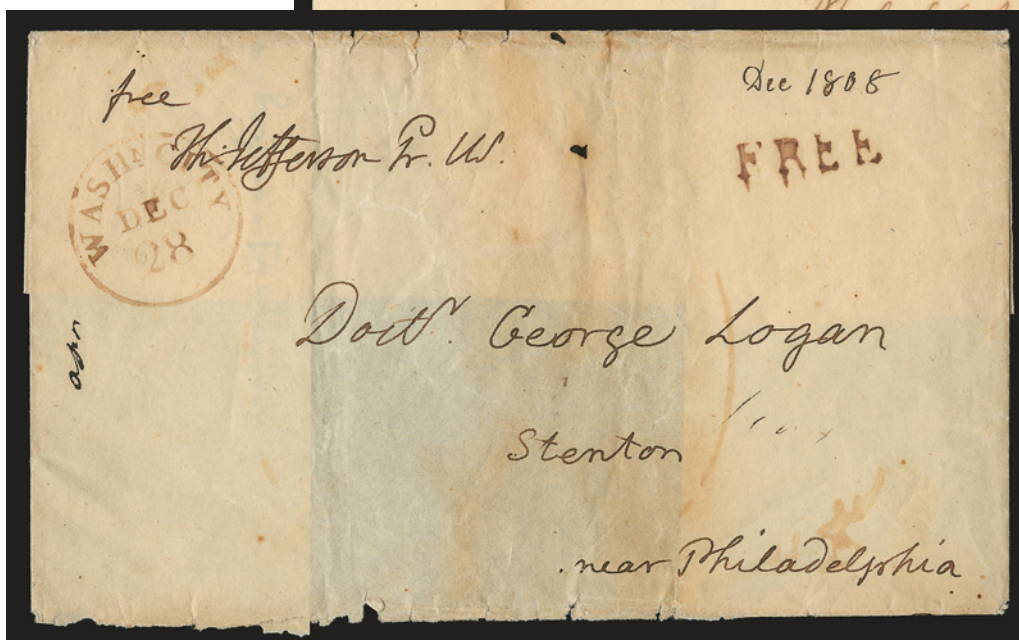 free
Th: Jefferson Pr. US.
Dec 1808
FREE
WASHN CITY
DEC
28
Doctr. George Logan
Stenton
near Philadelphia